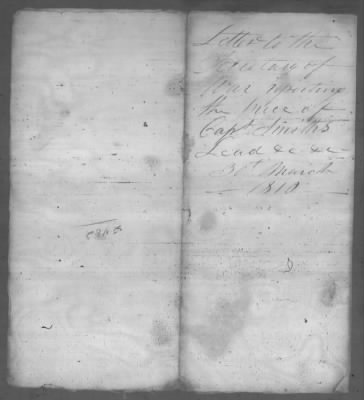 Letter to the
Secretary of
War reporting
the price of
Capt Smith's
Lead &c &c
31st March
1810